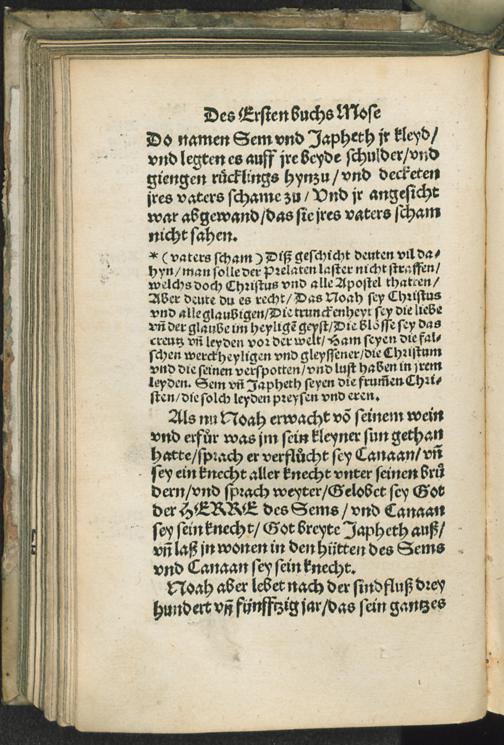 Des Ersten buchs Mose
Do namen Sem vnd Japheth jr kleyd/
vnd legten es auff jre beyde schulder/vnd
giengen rücklings hynzu/vnd decketen
jres vaters schame zu/Vnd jr angesicht
war abgewand/das sie jres vaters scham
nicht sahen.
* (vaters scham) Diß geschicht deuten vil da-
hyn/man solle der Prelaten laster nicht straffen/
welchs doch Christus vnd alle Apostel thatten/
Aber deute du es recht/Das Noah sey Christus
vnd alle glaubigen/Die trunckenheyt sey die liebe
vn̄ der glaube im heyligē geyst/Die blösse sey das
creutz vn̄ leyden vor der welt/Ham seyen die fal-
schen werckheyligen vnd gleyssener/die Christum
vnd die seinen verspotten/vnd lust haben in jrem
leyden. Sem vn̄ Japheth seyen die frum̄en Chri-
sten/die solch leyden preysen vnd eren.
Als nu Noah erwacht vō seinem wein
vnd erfůr was jm sein kleyner sun gethan
hatte/sprach er verflůcht sey Canaan/vn̄
sey ein knecht aller knecht vnter seinen brů
dern/vnd sprach weyter/Gelobet sey Got
der HERRE des Sems/vnd Canaan
sey sein knecht/Got breyte Japheth auß/
vn̄ laß jn wonen in den hütten des Sems
vnd Canaan sey sein knecht.
Noah aber lebet nach der sindfluß drey
hundert vn̄ fünfftzig jar/das sein gantzes